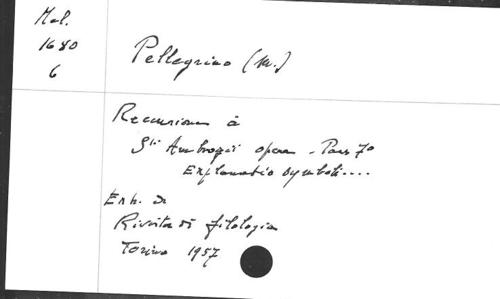 Mel.
1680
6
Pellegrino (M.)
Recensione à
Sti Ambrosii opera - Pars 7a
Explanatio symboli....
Extr. de
Rivista di filologia
Torino 1957